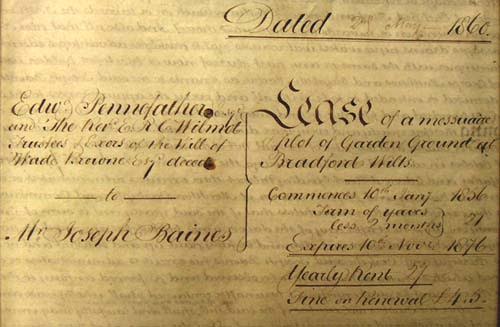 Dated 2nd May 1860.
Edwd. Pennefather Esqre.
and The Revd. E. R. C. Wilmot
Trustees & Exors of the Will of
Wade Browne Esqr. deced.
to
Mr. Joseph Baines
Lease of a messuage
plot of Garden Ground at
Bradford Wilts.
Commences 10th Jany. 1856
Term of years
less 2 months } 21
Expires 10th Novr. 1876
Yearly Rent 27
Fine on Renewal £4.5.